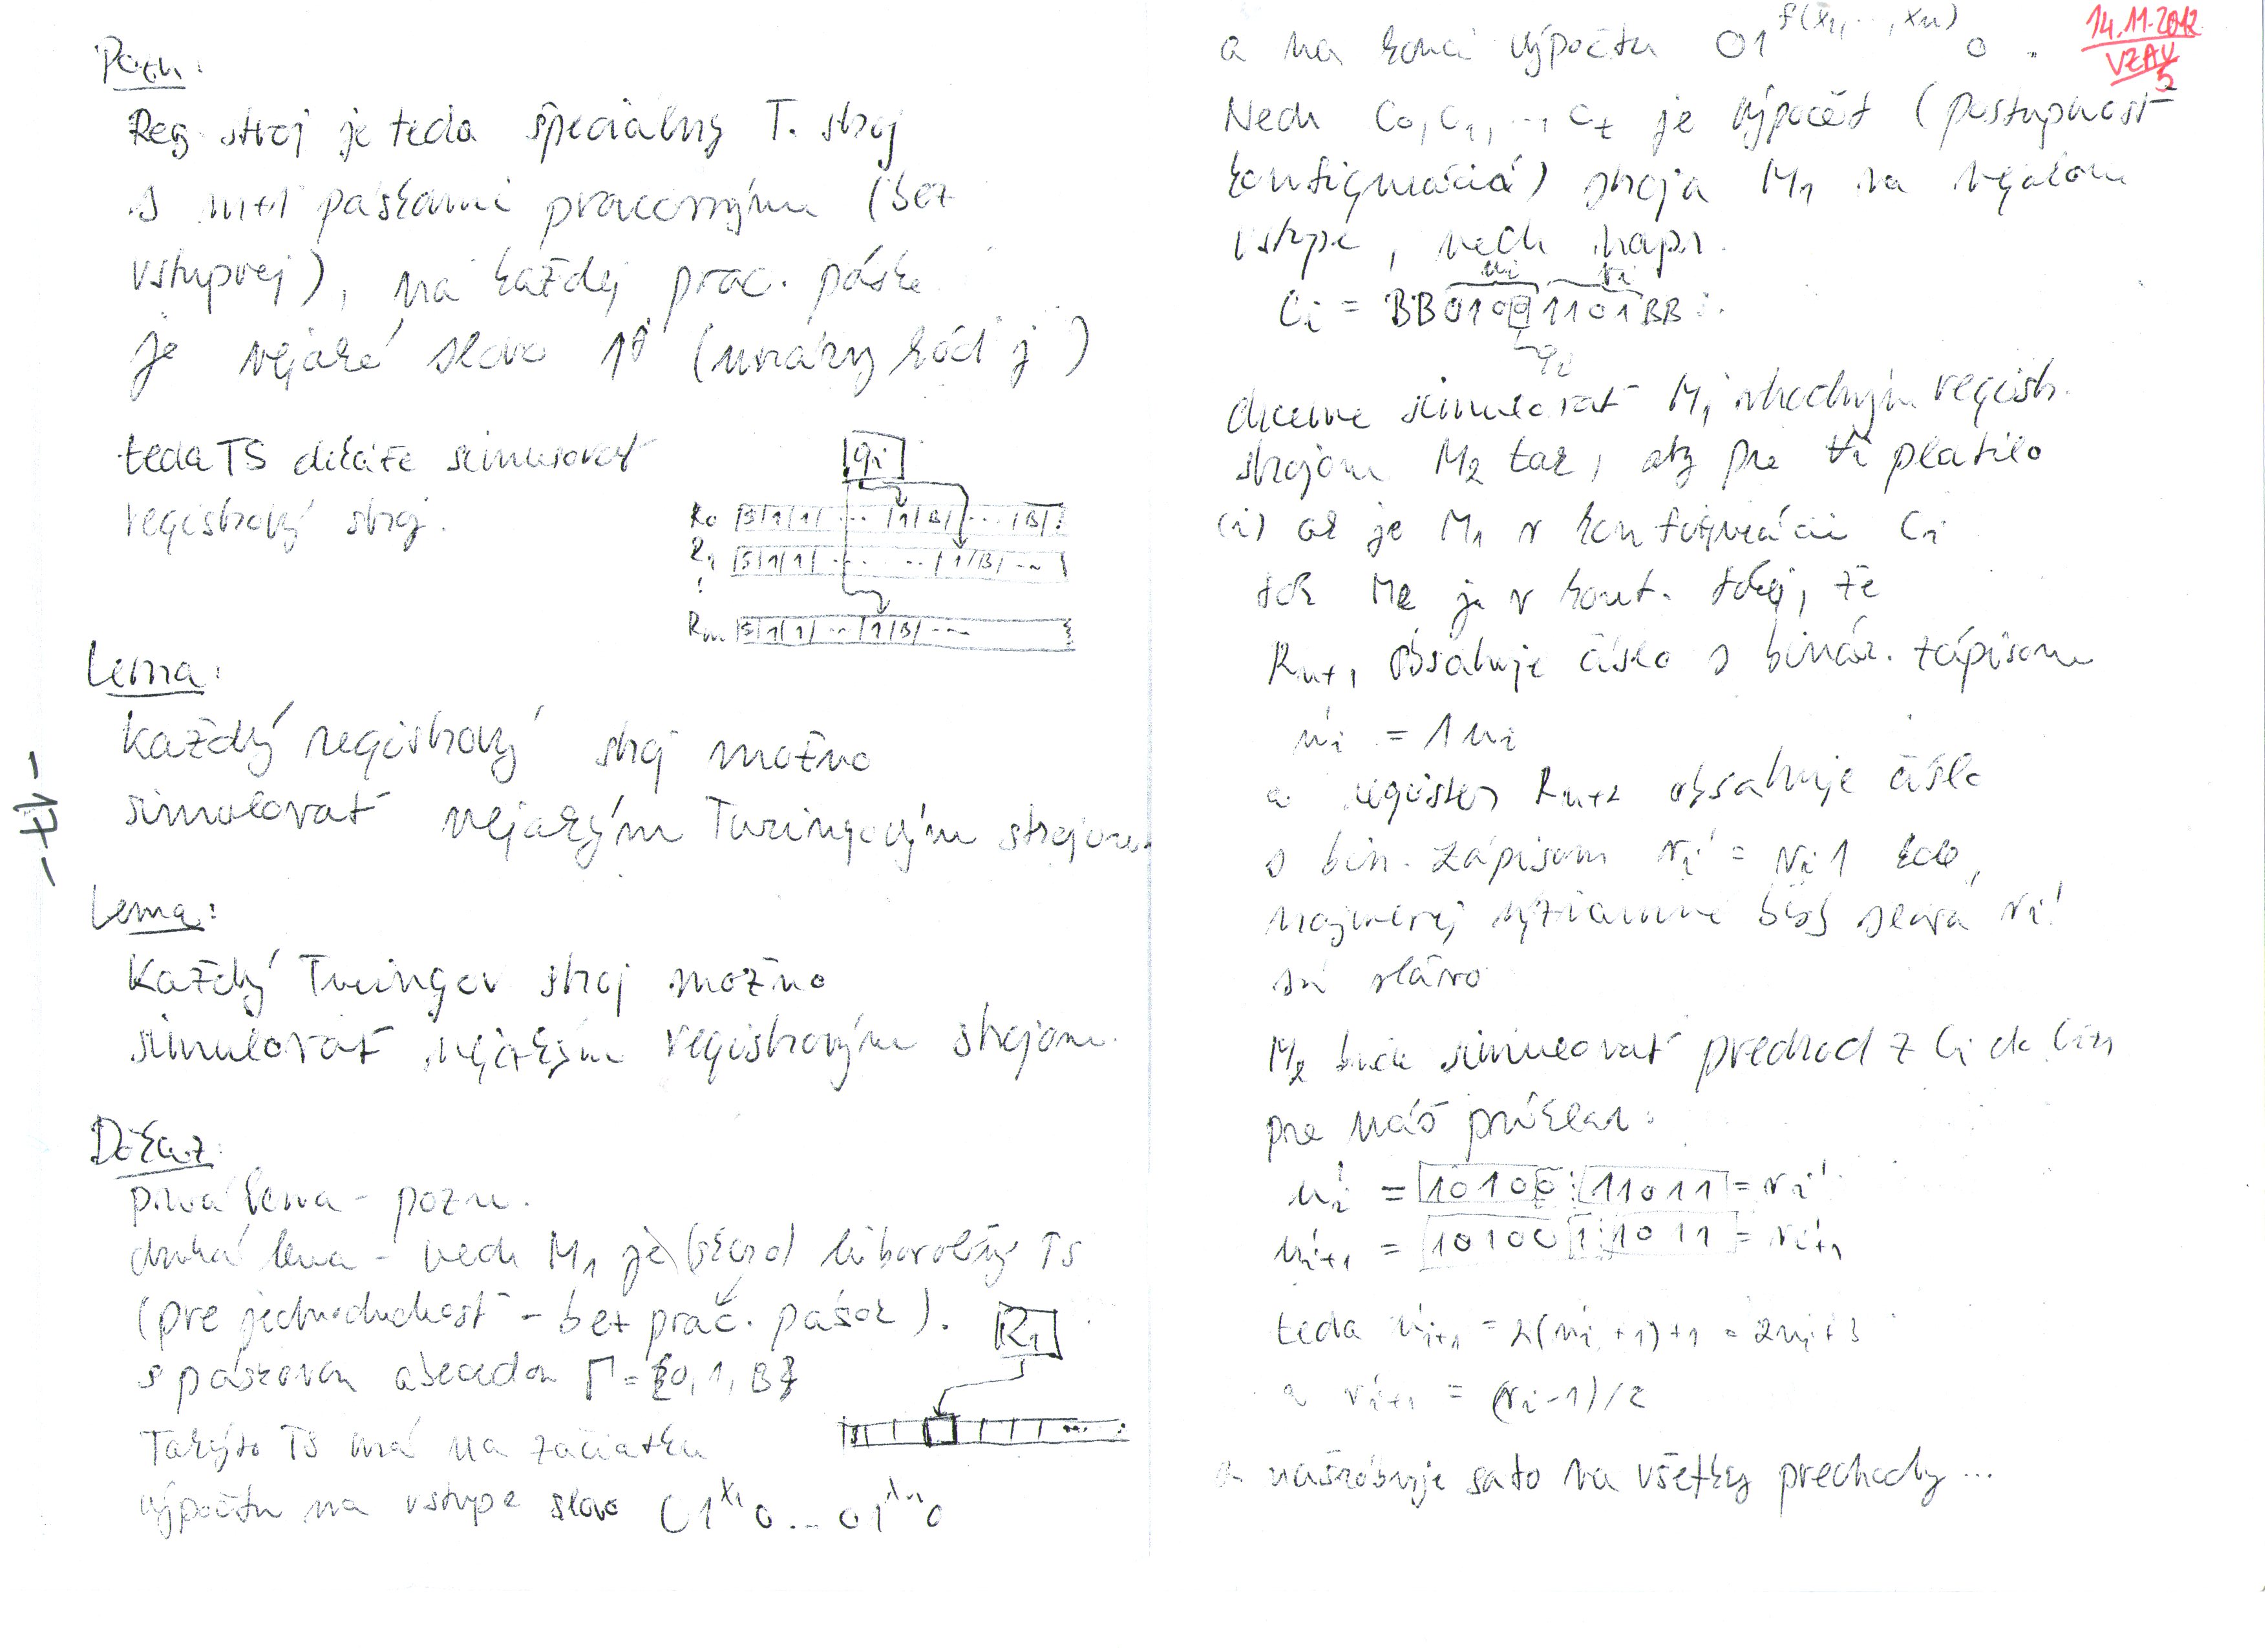 Pozn:
Reg. stroj je teda špeciálny T. stroj
s m+1 páskami pracovnými (bez
vstupnej), na každej prac. páske
je nejaké slovo 1^j (unárny kód j)
teda TS dokáže simulovať
registrový stroj.
qi
R0 B 1 1 ... 1 B ... B
R1 B 1 1 ... 1 B ...
Rm B 1 1 ... 1 B ...
Lema:
Každý registrový stroj možno
simulovať nejakým Turingovým strojom.
Lema:
Každý Turingov stroj možno
simulovať nejakým registrovým strojom.
Dôkaz:
prvá lema - pozn.
druhá lema - nech M1 je (skoro) ľubovoľný TS
(pre jednoduchosť - bez prac. pások).
s páskovou abecedou Γ = {0, 1, B}
Takýto TS má na začiatku
výpočtu na vstupe slovo 01^x1 0 ... 01^xn 0
- 17 -
14.11.2012
VZAV
5
a na konci výpočtu 01^f(x1, ..., xn) 0 .
Nech C0, C1, ..., Ct je výpočet (postupnosť
konfigurácií) stroja M1 na nejakom
vstupe, nech napr.
ui vi
Ci = BB01001101BB
qi
chceme simulovať M1 vhodným registr.
strojom M2 tak, aby pre ∀i platilo
(i) ak je M1 v konfigurácii Ci
tak M2 je v konf. takej, že
Rn+1 obsahuje číslo s binár. zápisom
ui' = 1ui
a register Rn+2 obsahuje číslo
s bin. zápisom vi' = vi1 kde
najmenej významné bity slova vi'
sú vľavo
M2 bude simulovať prechod z Ci do Ci+1
pre náš príklad:
ui' = 10100 11011 = vi'
u'i+1 = 101001 1011 = v'i+1
teda u'i+1 = 2(ui'+1)+1 = 2ui+3
a v'i+1 = (vi-1)/2
sa to na všetky prechody ...